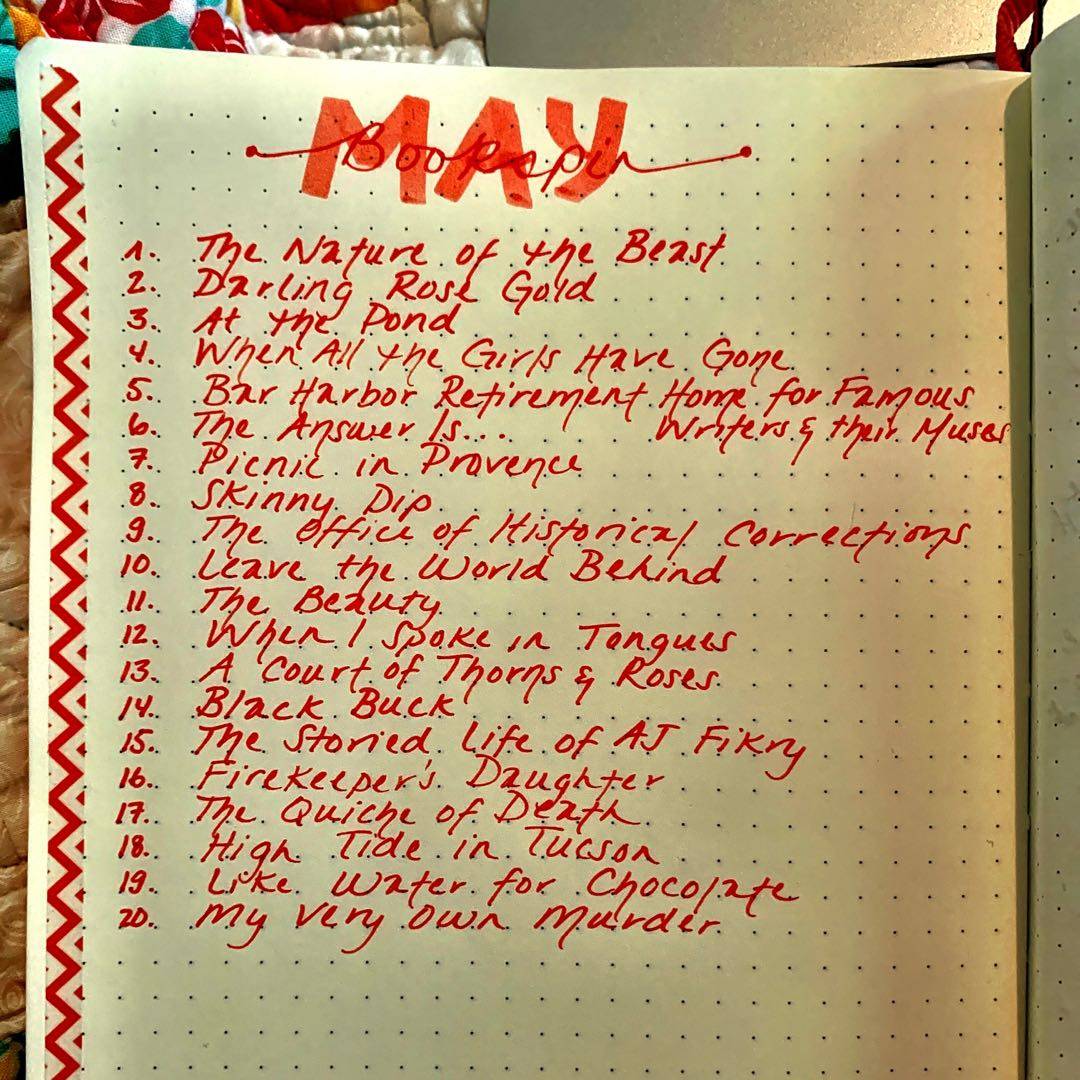 MAY
Bookspin
1. The Nature of the Beast
2. Darling Rose Gold
3. At the Pond
4. When All the Girls Have Gone
5. Bar Harbor Retirement Home for Famous
6. The Answer Is... Writers & their Muses
7. Picnic in Provence
8. Skinny Dip
9. The Office of Historical Corrections
10. Leave the World Behind
11. The Beauty
12. When I Spoke in Tongues
13. A Court of Thorns & Roses
14. Black Buck
15. The Storied Life of AJ Fikry
16. Firekeeper's Daughter
17. The Quiche of Death
18. High Tide in Tucson
19. Like Water for Chocolate
20. My Very Own Murder